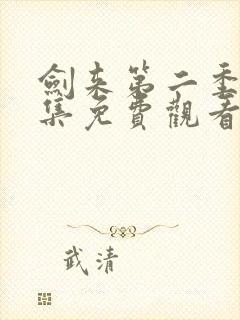 劍来第二季
集免費觀看
武清